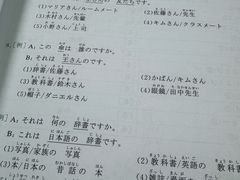 友だちです。
(1)マリアさん/ルームメート
(2)佐藤さん/先生
(3)木村さん/先輩
(4)キムさん/クラスメート
(5)小野さん/上司
[例] A:この 傘は 誰のですか。
B:それは 王さんのです。
(1)辞書/佐藤さん
(2)かばん/キムさん
(3)教科書/鈴木さん
(4)眼鏡/田中先生
(5)帽子/ダニエルさん
[例] A:それは 何の 辞書ですか。
B:これは 日本語の 辞書です。
(1)写真/家族の 写真
(2)教科書/英語の
(3)本/日本の 昔話の 本